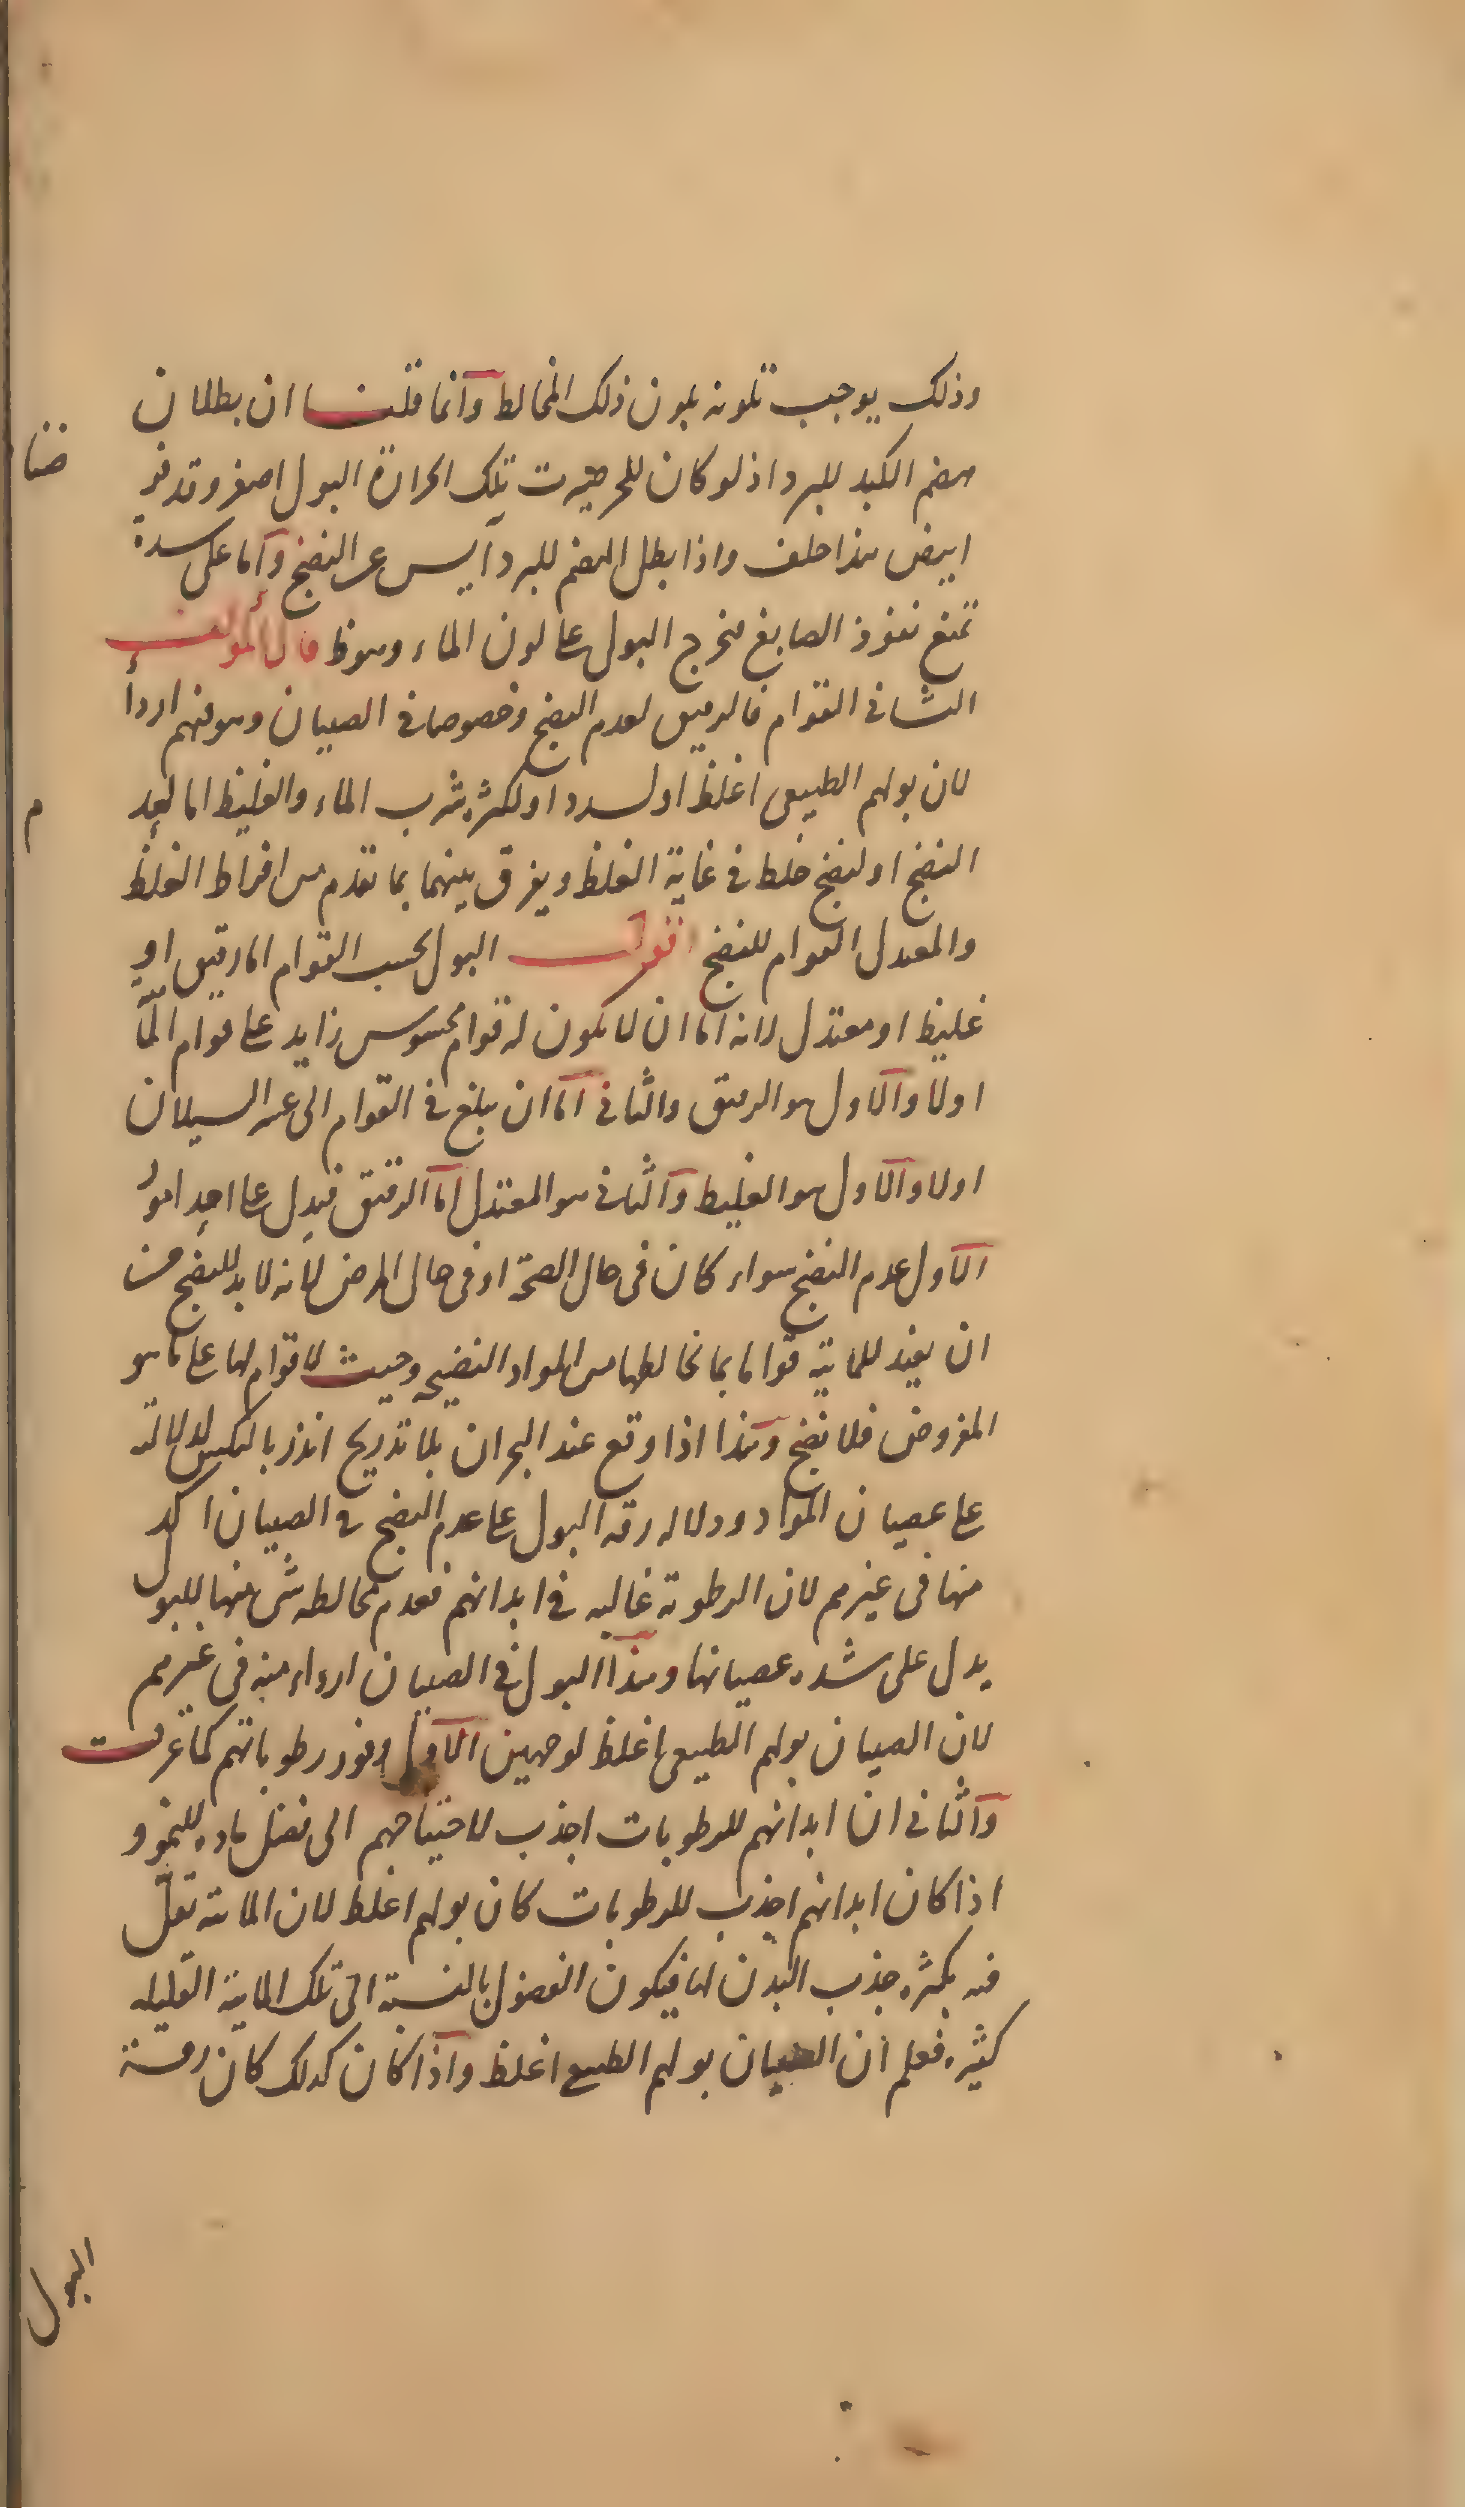 وذلك يوجب تلونه بلون ذلك المخالط وآنما قلنا ان بطلان
هضم الكبد للبرد اذ لو كان للحر صيرت تلك الحرارة البول اصفر وقد فر
ضنا
ابيض هذا خلف واذا بطل الهضم للبرد آيس عن النضج وآما على سدة
تمنع نفوذ الصابغ فخرج البول على لون الماء وهو ظ قال المولف
الثانى القوام فالرقيق لعدم النضج وخصوصا فى الصبيان وهو فيهم اردأ
لان بولهم الطبيعى اغلظ او لسدد او لكثرة شرب الماء والغليظ اما لعد
م
النضج او لنضج خلط فى غاية الغلظ ويفرق بينهما بما تقدم من افراط الغلظ
والمعتدل القوام للنضج اقول البول بحسب القوام اما رقيق او
غليظ او معتدل لانه اما ان لا يكون له قوام محسوس زايد على قوام المآ
اولا وآلاول هو الرقيق والثانى آما ان يبلغ فى القوام الى عسر السيلان
اولا وآلاول هو الغليظ وآلثانى هو المعتدل آما الرقيق فيدل على احد امور
آلاول عدم النضج سواء كان فى حال الصحة او فى حال المرض لانه لا بد للنضج من
ان يفيد للمائية قواما بما يخالطها من المواد النضيجه وحيث لا قوام لها على ما هو
المفروض فلا نضج وهذا اذا وقع عند البحران بلا تدريج انذر بالنكس لدلالته
على عصيان المواد ودلاله رقه البول على عدم النضج فى الصبيان اكد
منها فى غيرهم لان الرطوبة غالبه فى ابدانهم فعدم مخالطه شى منها للبول
يدل على شده عصيانها وهذا البول فى الصبيان ارداء منه فى غيرهم
لان الصبيان بولهم الطبيعى اغلظ لوجهين آلاول وفور رطوباتهم كما عرفت
وآلثانى ان ابدانهم للرطوبات اجذب لاحتياجهم الى فضل ماده للنمو و
اذا كان ابدانهم اجذب للرطوبات كان بولهم اغلظ لان المائية تقل
فيه بكثرة جذب البدن لها فيكون الفضول بالنسبة الى تلك المائية القليله
كثيره فعلم ان الصبيان بولهم الطبيعى اغلظ وآذا كان كذلك كان رقة
البول